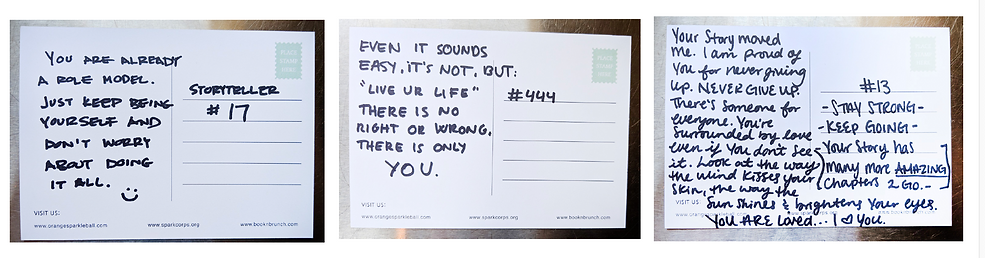 YOU ARE ALREADY
A ROLE MODEL.
JUST KEEP BEING
YOURSELF AND
DON'T WORRY
ABOUT DOING
IT ALL.
STORYTELLER
#17
VISIT US:
www.orangesparkleball.com www.sparkcorps.org www.booknbrunch.com
EVEN IT SOUNDS
EASY, IT'S NOT, BUT:
"LIVE UR LIFE"
THERE IS NO
RIGHT OR WRONG.
THERE IS ONLY
YOU.
#444
VISIT US:
www.orangesparkleball.com www.sparkcorps.org www.booknbrunch.com
Your Story moved
me. I am proud of
You for never giving
up. NEVER GIVE UP.
There's Someone for
everyone. You're
Surrounded by love
even if You don't See
it. Look at the way
the wind Kisses your
Skin, the way the
Sun Shines & brightens Your eyes.
You ARE loved... I ♡ You.
#13
-STAY STRONG-
-KEEP GOING-
Your Story has
many more AMAZING
Chapters 2 GO.-
VISIT US: